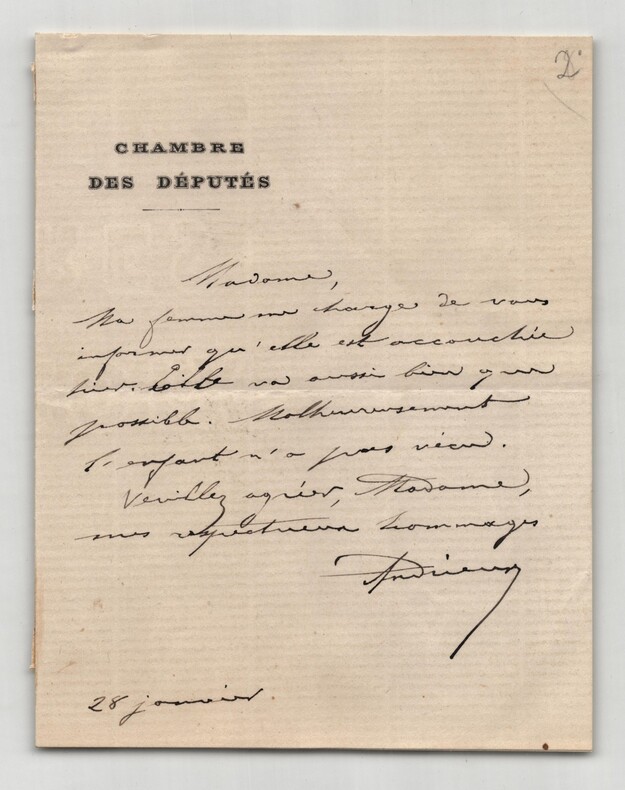 CHAMBRE
DES DÉPUTÉS
Madame,
Ma femme me charge de vous
informer qu'elle est accouchée
hier. Elle va aussi bien que
possible. Malheureusement
l'enfant n'a pas vécu.
Veuillez agréer, Madame,
mes respectueux hommages
Andrieux
28 janvier